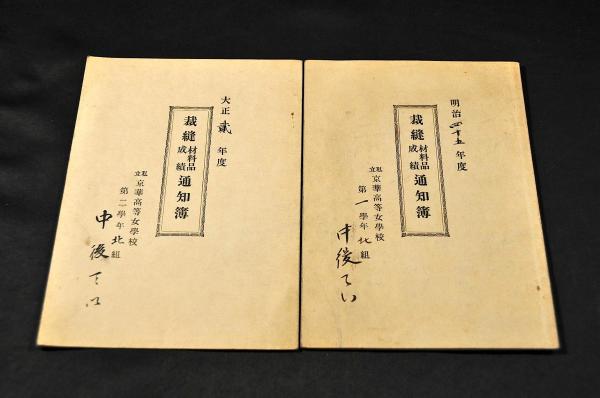 明治四十五年度
裁縫材料品成績通知簿
私立京華高等女學校
第一學年北組
中後てい
大正貳年度
裁縫材料品成績通知簿
私立京華高等女學校
第二學年北組
中後てい